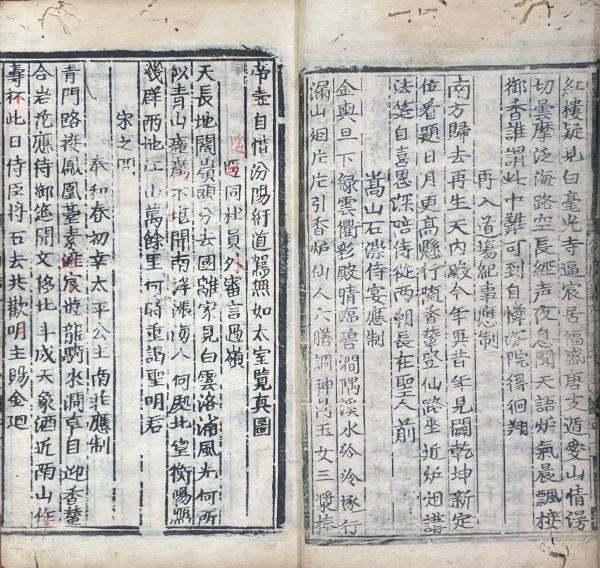 紅樓疑見白毫光寺逼宸居福盛唐支遁愛山情謾
切曇摩泛海路空長經声夜息聞天語炉氣晨飄接
御香誰謂此中難可到自憐深院得徊翔
再入道場紀事應制
南方歸去再生天内殿今年異昔年見闢乾坤新定
位看題日月更高懸行随香輦登仙路坐近炉烟講
法筵自喜恩深陪侍從兩朝長在聖人前
嵩山石淙侍宴應制
金輿旦下緑雲衢彩殿晴臨碧澗隅溪水泠泠逐行
漏山烟片片引香炉仙人六膳調神鼎玉女三漿捧
帝壺自惜汾陽紆道駕無如太室覧真圖
遥同杜員外審言過嶺
天長地闊嶺頭分去國離家見白雲洛浦風光何所
似青山瘴癘不堪聞南浮漲海人何處北望衡陽鴈
幾群兩地江山萬餘里何時重謁聖明君
宋之問
奉和春初幸太平公主南莊應制
青門路接鳳凰臺素滻宸遊龍騎来澗草自迎香輦
合岩花應待御筵開文移北斗成天象酒近南山作
壽杯此日侍臣將石去共歡明主賜金廻